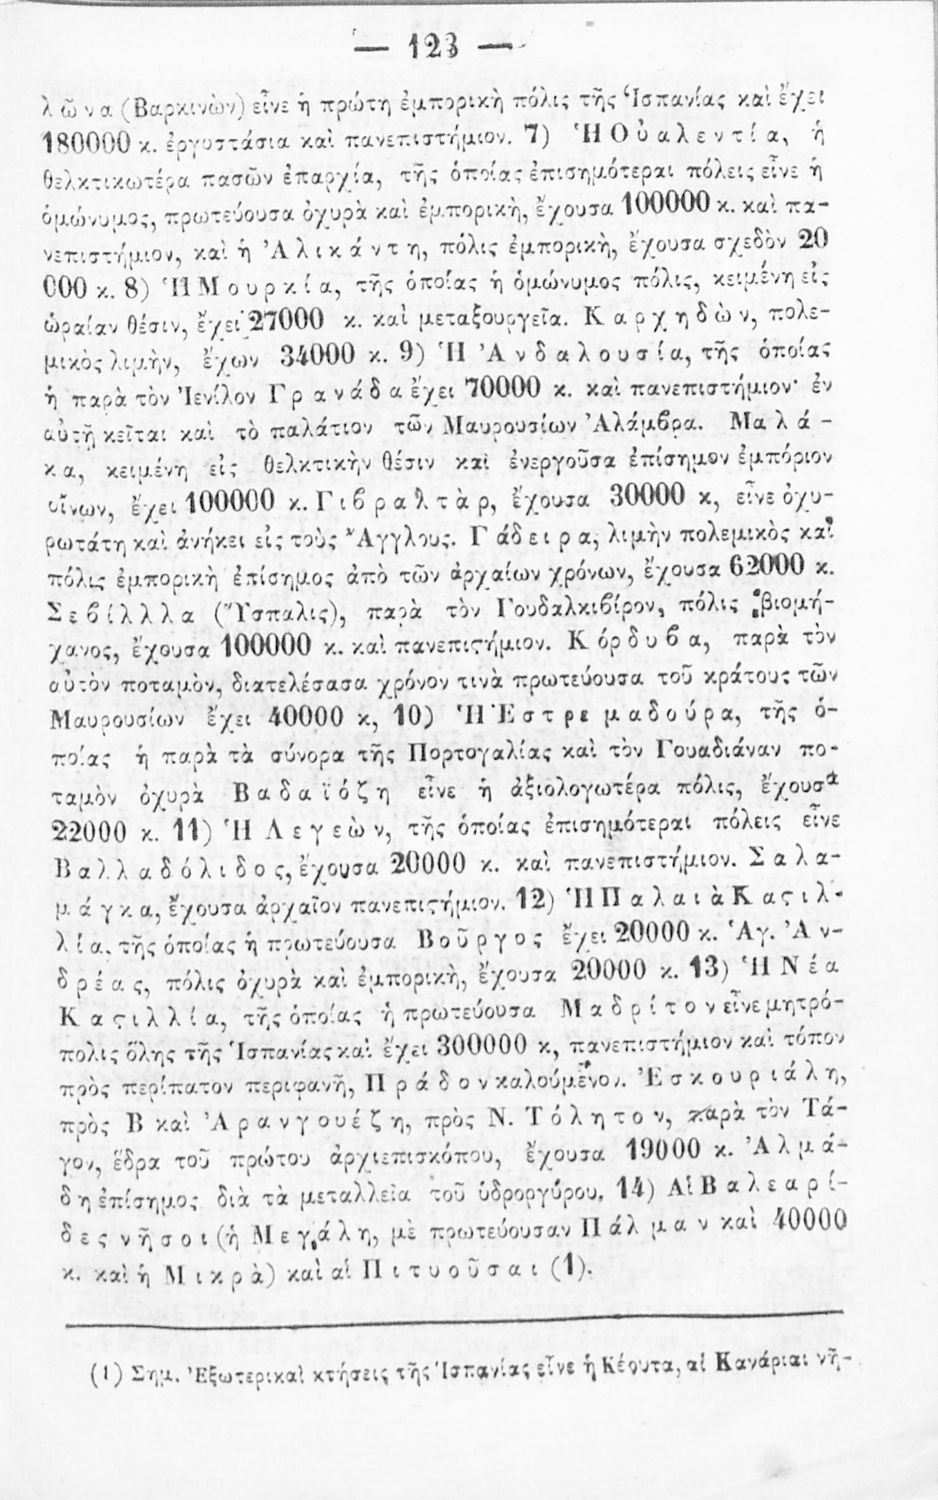 — 123 —
λῶνα (Βαρκινὼν) εἶνε ἡ πρώτη ἐμπορικὴ πόλις τῆς Ἱσπανίας καὶ ἔχει
180000 κ. ἐργοστάσια καὶ πανεπιστήμιον. 7) Ἡ Οὐαλεντία, ἡ
θελκτικωτέρα πασῶν ἐπαρχία, τῆς ὁποίας ἐπισημότεραι πόλεις εἶνε ἡ
ὁμώνυμος, πρωτεύουσα ὀχυρὰ καὶ ἐμπορικὴ, ἔχουσα 100000 κ. καὶ πα-
νεπιστήμιον, καὶ ἡ Ἀλικάντη, πόλις ἐμπορικὴ, ἔχουσα σχεδὸν 20
000 κ. 8) Ἡ Μουρκία, τῆς ὁποίας ἡ ὁμώνυμος πόλις, κειμένη εἰς
ὡραίαν θέσιν, ἔχει 27000 κ. καὶ μεταξουργεῖα. Καρχηδὼν, πολε-
μικὸς λιμὴν, ἔχων 34000 κ. 9) Ἡ Ἀνδαλουσία, τῆς ὁποίας
ἡ παρὰ τὸν Ἰενίλον Γρανάδα ἔχει 70000 κ. καὶ πανεπιστήμιον· ἐν
αὐτῇ κεῖται καὶ τὸ παλάτιον τῶν Μαυρουσίων Ἀλάμβρα. Μαλά-
κα, κειμένη εἰς θελκτικὴν θέσιν καὶ ἐνεργοῦσα ἐπίσημον ἐμπόριον
οἴνων, ἔχει 100000 κ. Γιβραλτὰρ, ἔχουσα 30000 κ, εἶνε ὀχυ-
ρωτάτη καὶ ἀνήκει εἰς τοὺς Ἄγγλους. Γάδειρα, λιμὴν πολεμικὸς καὶ
πόλις ἐμπορικὴ ἐπίσημος ἀπὸ τῶν ἀρχαίων χρόνων, ἔχουσα 62000 κ.
Σεβίλλλα (Ὕσπαλις), παρὰ τὸν Γουδαλκιβίρον, πόλις βιομή-
χανος, ἔχουσα 100000 κ. καὶ πανεπιστήμιον. Κόρδυβα, παρὰ τὸν
αὐτὸν ποταμὸν, διατελέσασα χρόνον τινὰ πρωτεύουσα τοῦ κράτους τῶν
Μαυρουσίων ἔχει 40000 κ, 10) Ἡ Ἐστρεμαδούρα, τῆς ὁ-
ποίας ἡ παρὰ τὰ σύνορα τῆς Πορτογαλίας καὶ τὸν Γουαδιάναν πο-
ταμὸν ὀχυρὰ Βαδαϊόζη εἶνε ἡ ἀξιολογωτέρα πόλις, ἔχουσα
22000 κ. 11) Ἡ Λεγεὼν, τῆς ὁποίας ἐπισημότεραι πόλεις εἶνε
Βαλλαδόλιδος, ἔχουσα 20000 κ. καὶ πανεπιστήμιον. Σαλα-
μάγκα, ἔχουσα ἀρχαῖον πανεπιστήμιον. 12) Ἡ Παλαιὰ Καςιλ-
λία, τῆς ὁποίας ἡ πρωτεύουσα Βοῦργος ἔχει 20000 κ. Ἁγ. Ἀν-
δρέας, πόλις ὀχυρὰ καὶ ἐμπορικὴ, ἔχουσα 20000 κ. 13) Ἡ Νέα
Καςιλλία, τῆς ὁποίας ἡ πρωτεύουσα Μαδρίτον εἶνε μητρό-
πολις ὅλης τῆς Ἱσπανίας καὶ ἔχει 300000 κ, πανεπιστήμιον καὶ τόπον
πρὸς περίπατον περιφανῆ, Πράδον καλούμενον. Ἐσκουριάλη,
πρὸς Β καὶ Ἀρανγουέζη, πρὸς Ν. Τόλητον, παρὰ τὸν Τά-
γον, ἕδρα τοῦ πρώτου ἀρχιεπισκόπου, ἔχουσα 19000 κ. Ἀλμά-
δη ἐπίσημος διὰ τὰ μεταλλεῖα τοῦ ὑδραργύρου. 14) Αἱ Βαλεαρί-
δες νῆσοι (ἡ Μεγάλη, μὲ πρωτεύουσαν Πάλμαν καὶ 40000
κ. καὶ ἡ Μικρὰ) καὶ αἱ Πιτυοῦσαι (1).
(1) Σημ. Ἐξωτερικαὶ κτήσεις τῆς Ἱσπανίας εἶνε ἡ Κέουτα, αἱ Κανάριαι νῆ-